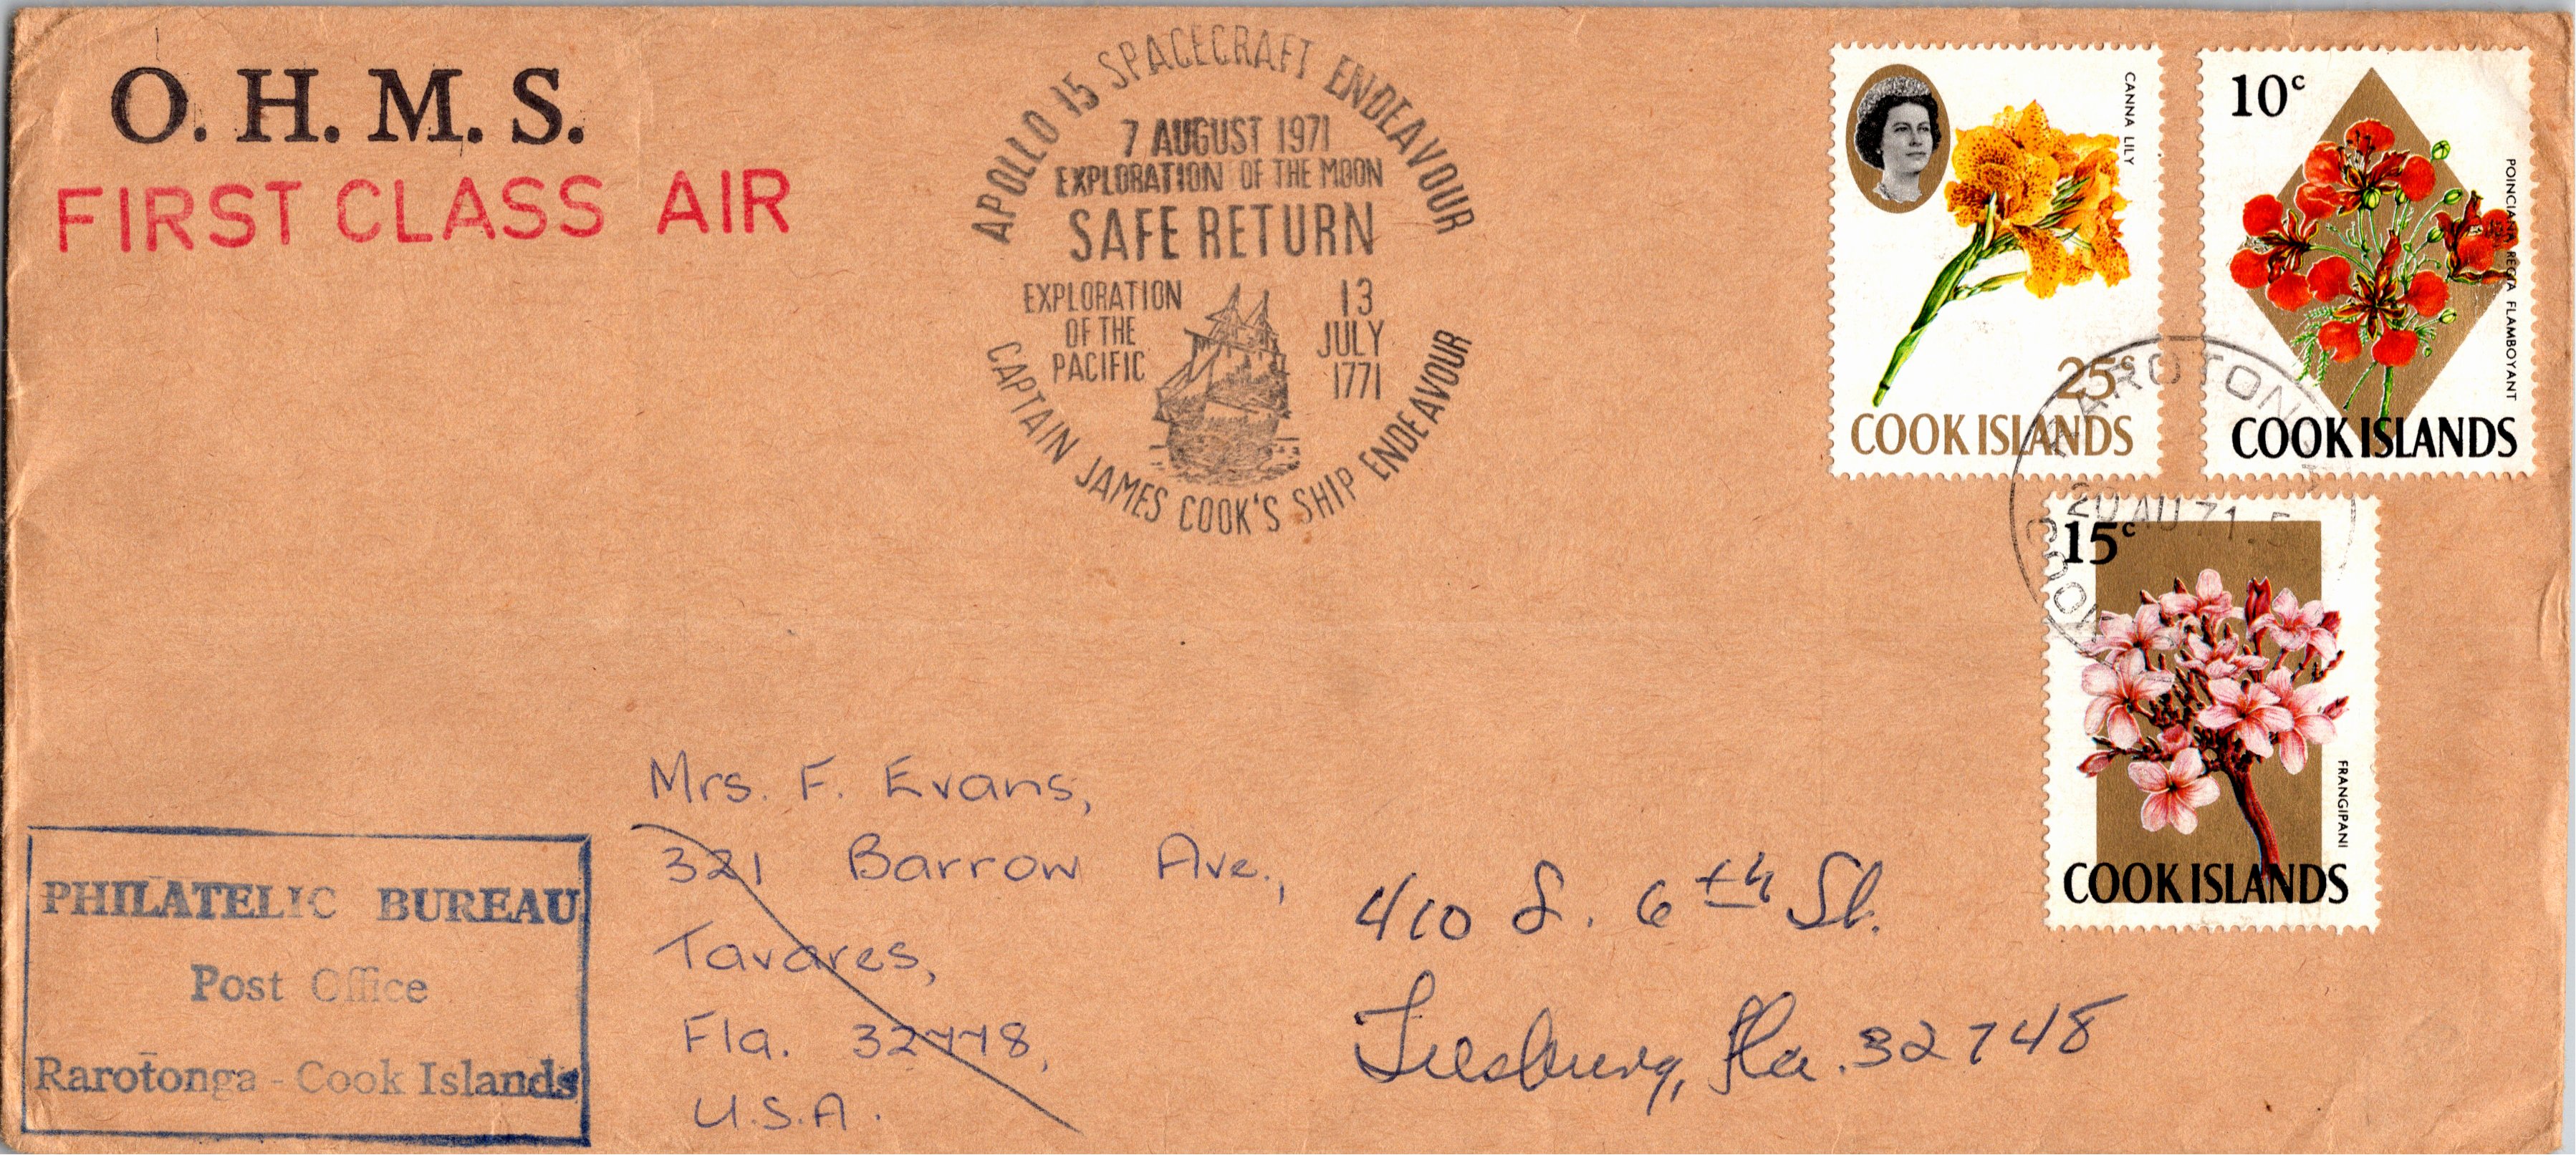 O. H. M. S.
FIRST CLASS AIR
APOLLO 15 SPACECRAFT ENDEAVOUR
7 AUGUST 1971
EXPLORATION OF THE MOON
SAFE RETURN
EXPLORATION
OF THE
PACIFIC
13
JULY
1771
CAPTAIN JAMES COOK'S SHIP ENDEAVOUR
CANNA LILY
25c
COOK ISLANDS
10c
POINCIANA REGIA FLAMBOYANT
COOK ISLANDS
RAROTONGA
20 AU 71.5
COOK
15c
FRANGIPANI
COOK ISLANDS
Mrs. F. Evans,
321 Barrow Ave.,
Tavares,
Fla. 32778,
U.S.A.
410 S. 6th St.
Leesburg, Fla. 32748
PHILATELIC BUREAU
Post Office
Rarotonga - Cook Islands